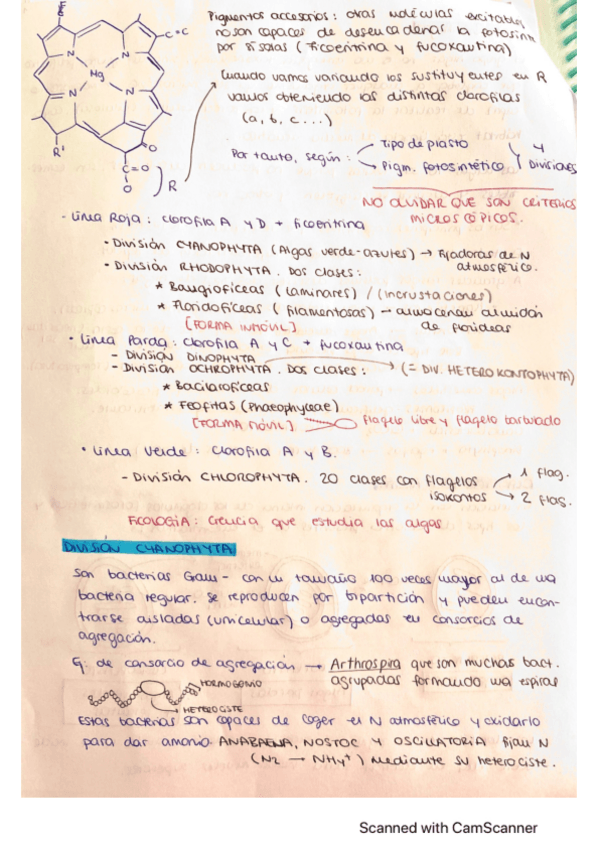 Pigmentos accesorios: otras moléculas excitables
no son capaces de desencadenar la fotosínt
por sí solas (ficoeritrina y fucoxantina)
Cuando vamos variando los sustituyentes en R
vamos obteniendo las distintas clorofilas
(a, b, c ...)
Por tanto, según:
Tipo de plasto
Pigm. fotosintético
4
Divisiones
NO OLVIDAR QUE SON CRITERIOS
MICROSCÓPICOS.
C=C
N
N
Mg
N
N
R'
O
C=O
O
R
- Línea Roja: clorofila A y D + ficoeritrina
• División CYANOPHYTA (Algas verde-azules) → fijadoras de N
atmosférico.
• División RHODOPHYTA. Dos clases:
* Bangiofíceas (laminares) / (incrustaciones)
* Floridofíceas (filamentosas) — almacenan almidón
de florideas
[FORMA INMÓVIL]
• Línea Parda: clorofila A y C + fucoxantina
- División DINOPHYTA
- División OCHROPHYTA. Dos clases: (= DIV. HETEROKONTOPHYTA)
* Bacilarofíceas
* Feofitas (Phaeophyceae)
[FORMA MÓVIL] flagelo libre y flagelo barbado
• Línea Verde: clorofila A y B.
- División CHLOROPHYTA. 20 clases con flagelos
isokontos
1 flag.
2 flag.
FICOLOGÍA: Ciencia que estudia las algas
DIVISIÓN CYANOPHYTA
Son bacterias Gram - con un tamaño 100 veces mayor al de una
bacteria regular. Se reproducen por bipartición y pueden encon-
trarse aisladas (unicelular) o agregadas en consorcios de
agregación.
Ej: de consorcio de agregación → Arthrospira que son muchas bact.
agrupadas formando una espiral
HORMOGONIO
HETEROCISTE
Estas bacterias son capaces de coger el N atmosférico y oxidarlo
para dar amonio ANABAENA, NOSTOC Y OSCILLATORIA fijan N
(N2 → NH4+) mediante su heterociste.
Scanned with CamScanner